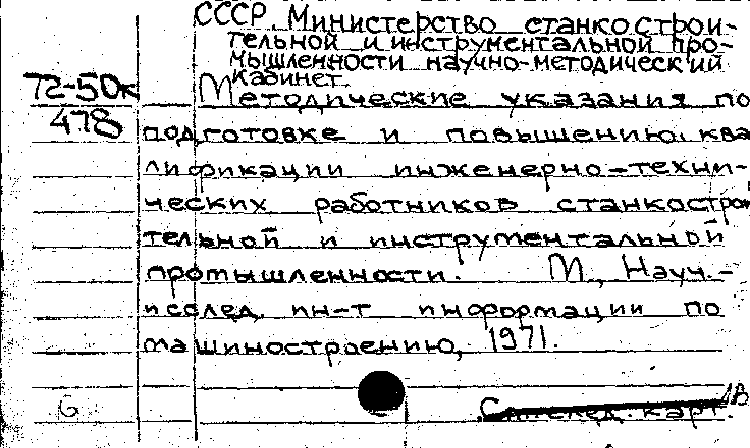 СССР. Министерство станкострои-
тельной и инструментальной про-
мышленности научно-методический
кабинет.
72-50к
478
Методические указания по
подготовке и повышению ква
лификации инженерно-техни-
ческих работников станкострои
тельной и инструментальной
промышленности. М., Науч.-
исслед. ин-т информации по
машиностроению, 1971.
6